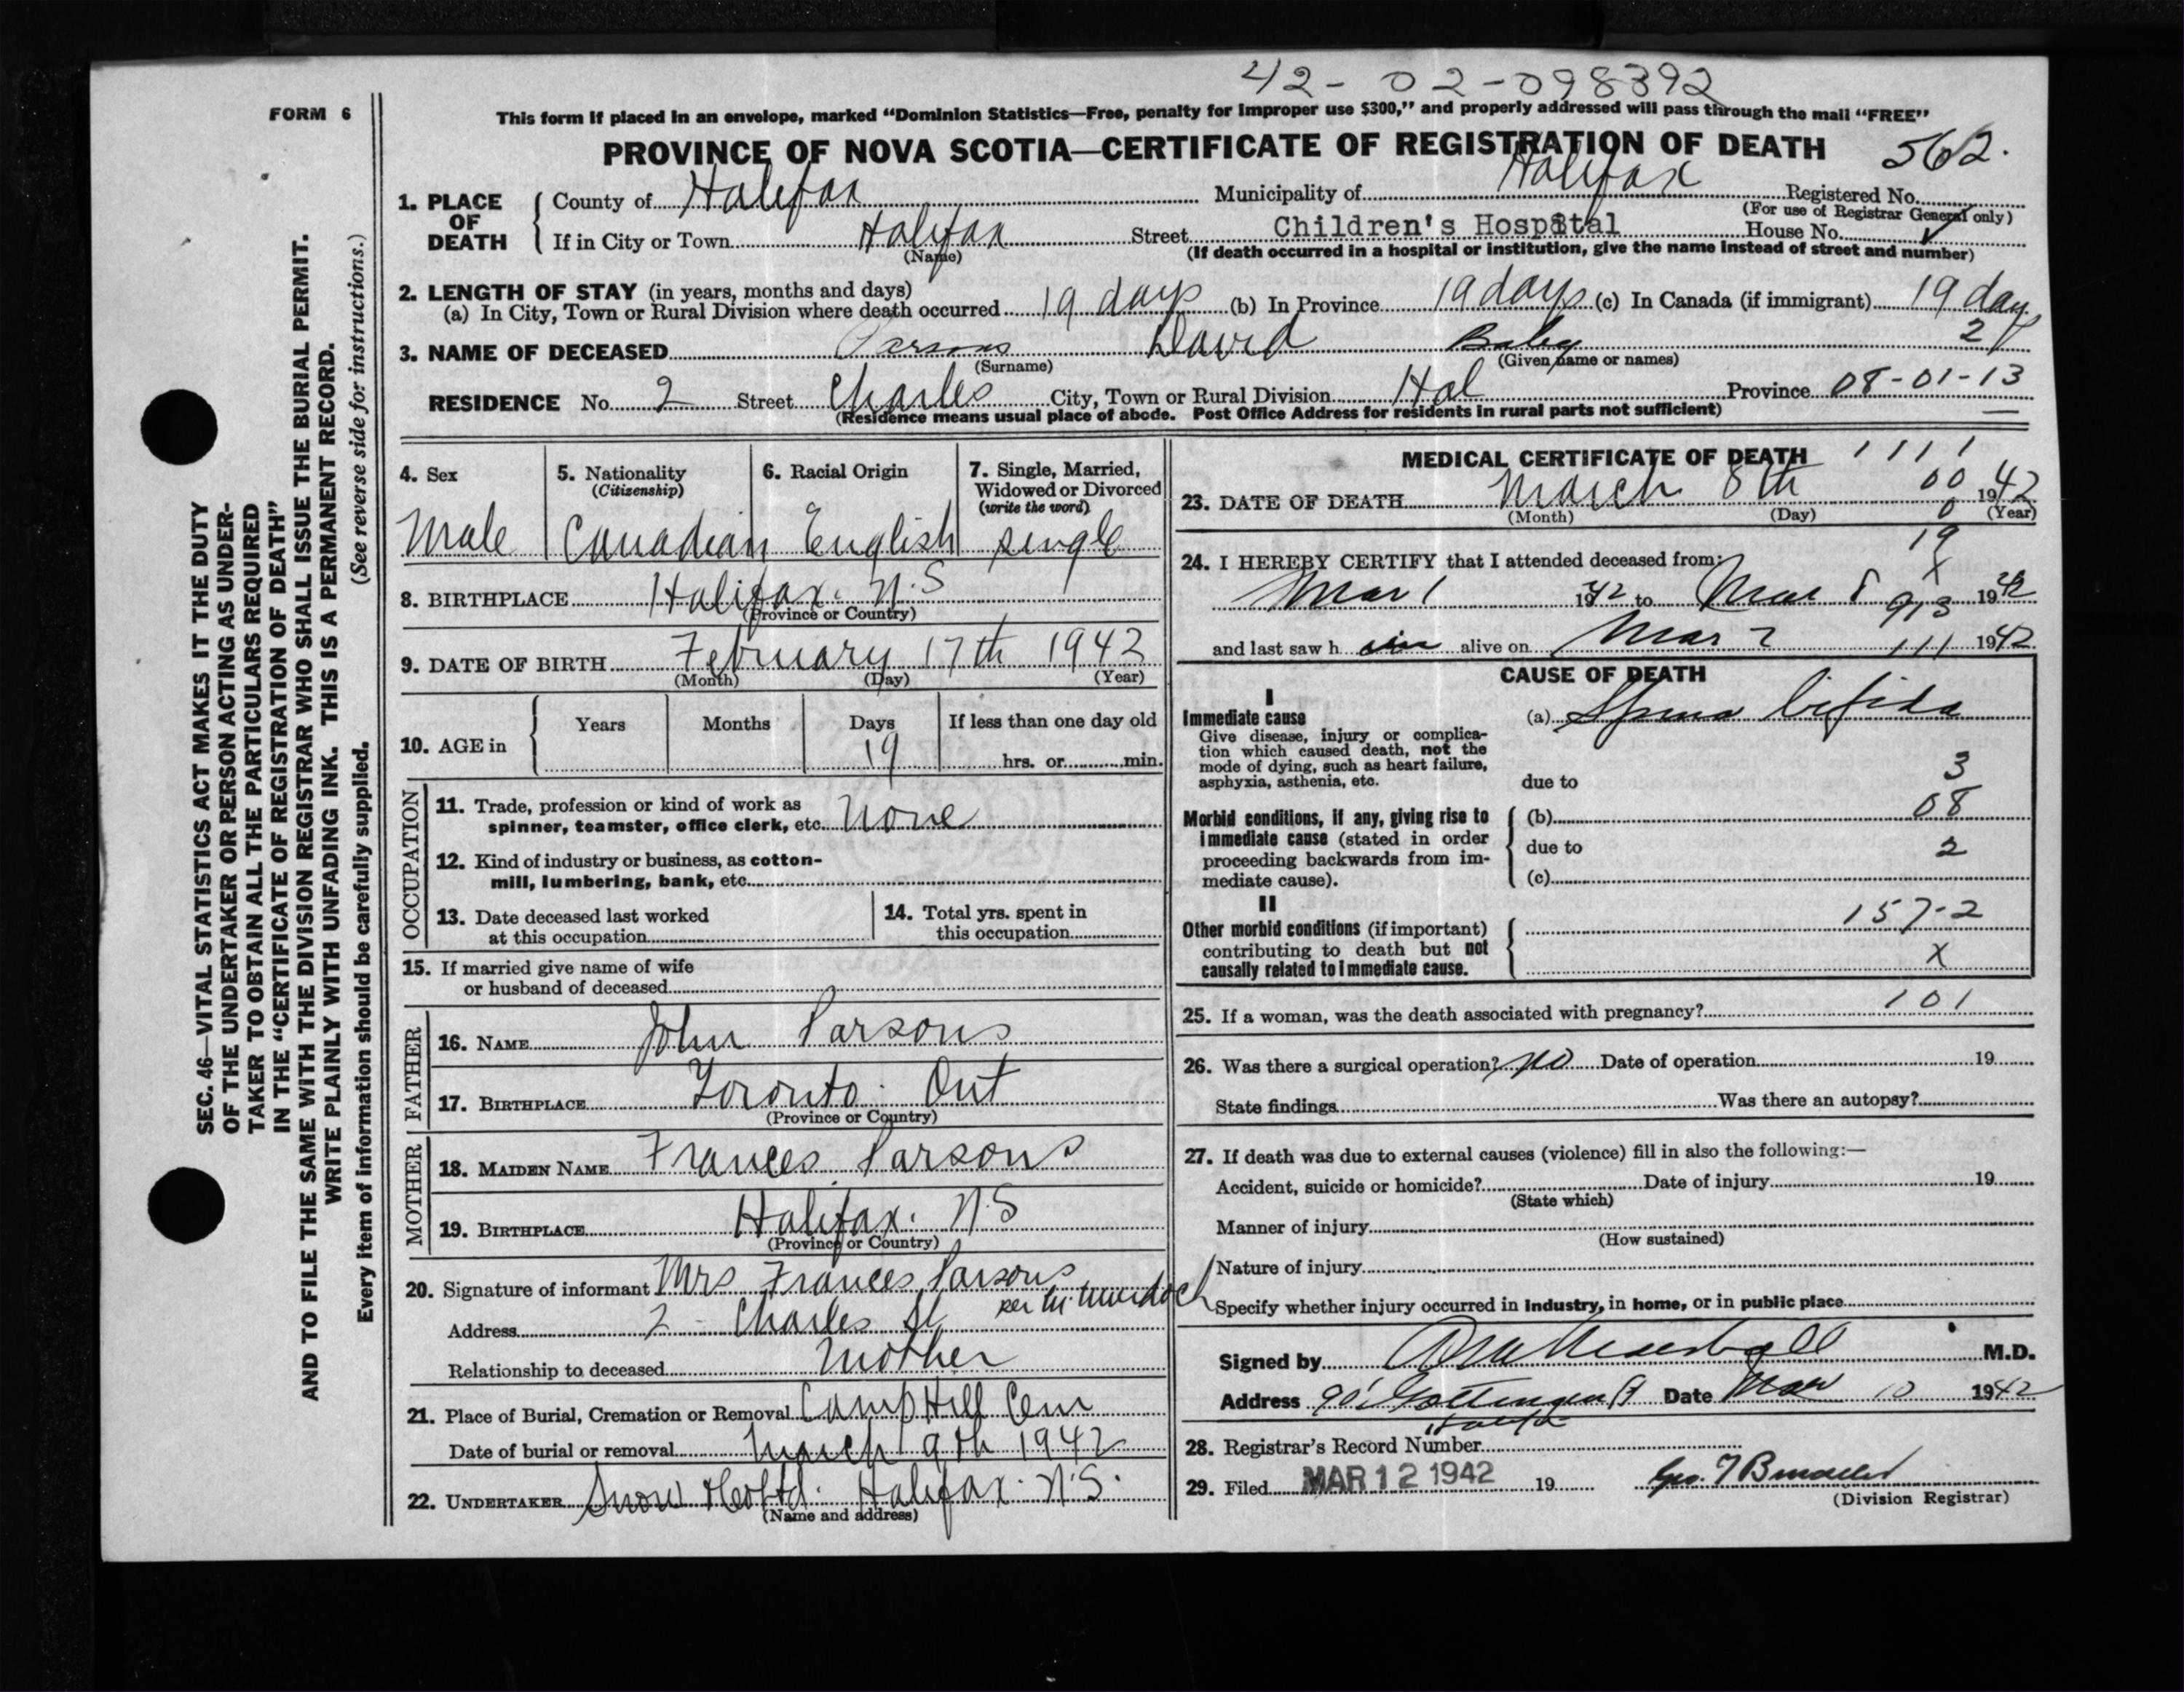 42-02-098392
FORM 6
This form if placed in an envelope, marked "Dominion Statistics—Free, penalty for improper use $300," and properly addressed will pass through the mail "FREE"
PROVINCE OF NOVA SCOTIA—CERTIFICATE OF REGISTRATION OF DEATH 562.
1. PLACE OF DEATH
County of Halifax Municipality of Halifax Registered No.
(For use of Registrar General only)
If in City or Town Halifax Street Children's Hospital House No.
(Name) (If death occurred in a hospital or institution, give the name instead of street and number)
2. LENGTH OF STAY (in years, months and days)
(a) In City, Town or Rural Division where death occurred 19 days (b) In Province 19 days (c) In Canada (if immigrant) 19 days
3. NAME OF DECEASED Parsons David Baby 2
(Surname) (Given name or names)
RESIDENCE No. 2 Street Charles City, Town or Rural Division Hal Province 08-01-13
(Residence means usual place of abode. Post Office Address for residents in rural parts not sufficient)
4. Sex
Male
5. Nationality
(Citizenship)
Canadian
6. Racial Origin
English
7. Single, Married,
Widowed or Divorced
(write the word)
single
8. BIRTHPLACE Halifax. N.S
(Province or Country)
9. DATE OF BIRTH February 17th 1942
(Month) (Day) (Year)
10. AGE in
Years Months Days If less than one day old
19 hrs. or min.
OCCUPATION
11. Trade, profession or kind of work as
spinner, teamster, office clerk, etc. None
12. Kind of industry or business, as cotton-
mill, lumbering, bank, etc.
13. Date deceased last worked
at this occupation
14. Total yrs. spent in
this occupation
15. If married give name of wife
or husband of deceased
FATHER
16. NAME John Parsons
17. BIRTHPLACE Toronto. Ont
(Province or Country)
MOTHER
18. MAIDEN NAME Frances Parsons
19. BIRTHPLACE Halifax. N.S
(Province or Country)
20. Signature of informant Mrs Frances Parsons
per M. Murdoch
Address 2 - Charles St
Relationship to deceased Mother
21. Place of Burial, Cremation or Removal Camp Hill Cem
Date of burial or removal March 9th 1942
22. UNDERTAKER Snow & Co Ltd. Halifax. N.S.
(Name and address)
MEDICAL CERTIFICATE OF DEATH 1111
23. DATE OF DEATH March 8th 00 1942
(Month) (Day) 0 (Year)
19
24. I HEREBY CERTIFY that I attended deceased from: X
Mar 1 1942 to Mar 8 913 1942
and last saw h im alive on Mar 7 111 1942
CAUSE OF DEATH
I
Immediate cause
Give disease, injury or complica-
tion which caused death, not the
mode of dying, such as heart failure,
asphyxia, asthenia, etc.
(a) Spina bifida
due to 3
Morbid conditions, if any, giving rise to
immediate cause (stated in order
proceeding backwards from im-
mediate cause).
(b) 08
due to 2
(c)
II
Other morbid conditions (if important)
contributing to death but not
causally related to immediate cause.
157-2
X
25. If a woman, was the death associated with pregnancy? 101
26. Was there a surgical operation? no Date of operation 19
State findings Was there an autopsy?
27. If death was due to external causes (violence) fill in also the following:—
Accident, suicide or homicide? Date of injury 19
(State which)
Manner of injury
(How sustained)
Nature of injury
Specify whether injury occurred in industry, in home, or in public place
Signed by M.D.
Address 90 Gottingen St Date Mar 10 1942
Halifax
28. Registrar's Record Number
29. Filed MAR 12 1942 19
(Division Registrar)
SEC. 46—VITAL STATISTICS ACT MAKES IT THE DUTY
OF THE UNDERTAKER OR PERSON ACTING AS UNDER-
TAKER TO OBTAIN ALL THE PARTICULARS REQUIRED
IN THE "CERTIFICATE OF REGISTRATION OF DEATH"
AND TO FILE THE SAME WITH THE DIVISION REGISTRAR WHO SHALL ISSUE THE BURIAL PERMIT.
WRITE PLAINLY WITH UNFADING INK. THIS IS A PERMANENT RECORD.
Every item of information should be carefully supplied. (See reverse side for instructions.)